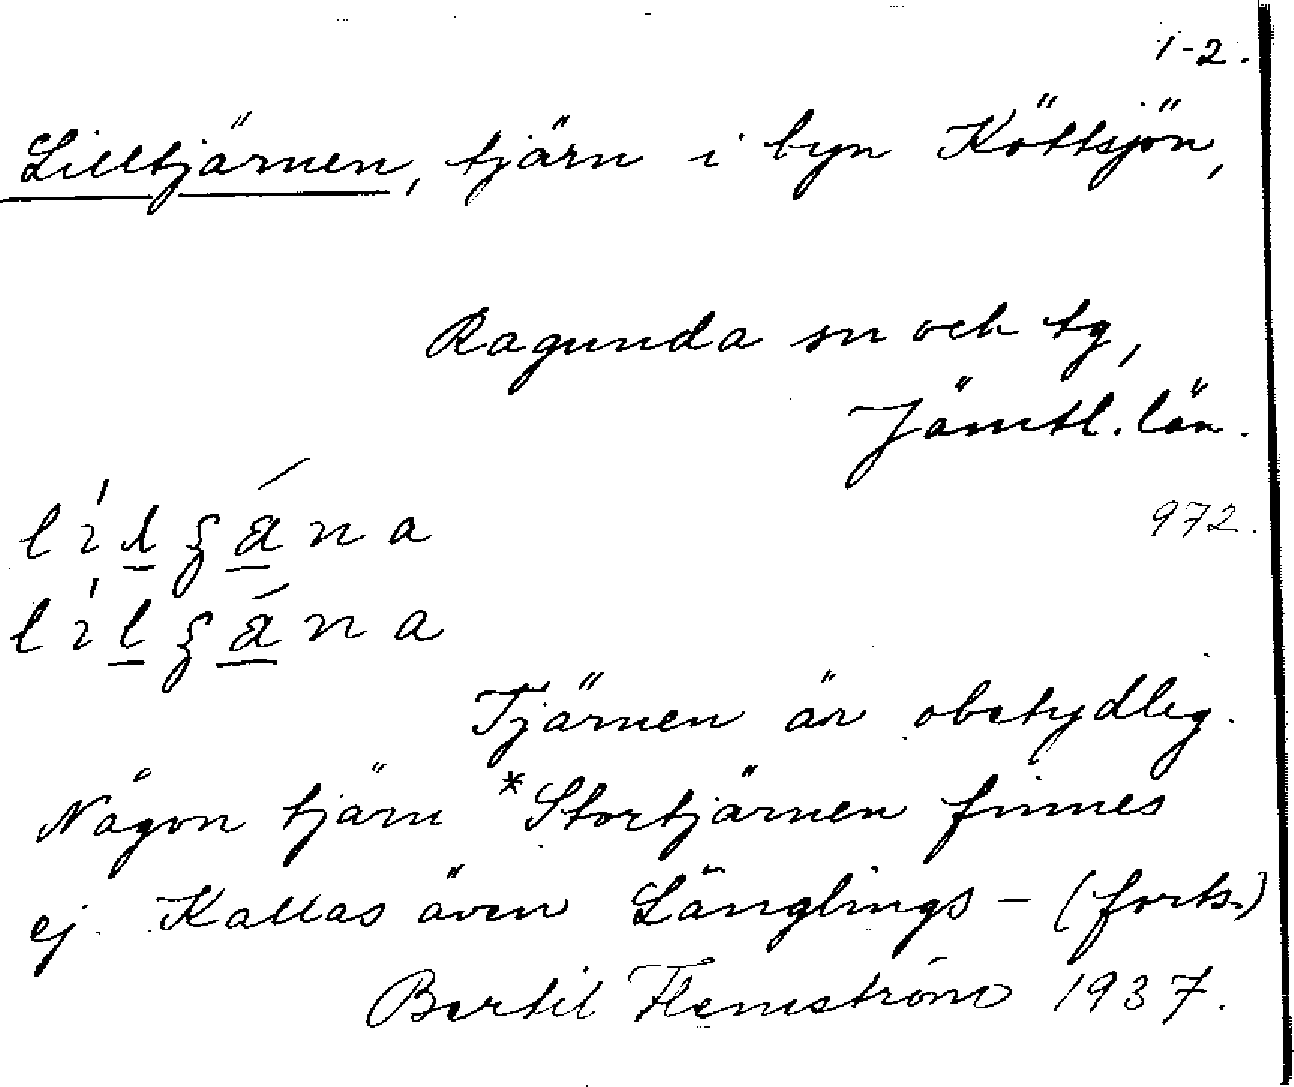 1-2.
Lilltjärnen, tjärn i byn Köttsjön,
Ragunda sn och tg,
Jämtl. län.
972.
Tjärnen är obetydlig.
Någon tjärn *Stortjärnen finnes
ej. Kallas även Länglings- (forts.)
Bertil Flemström 1937.